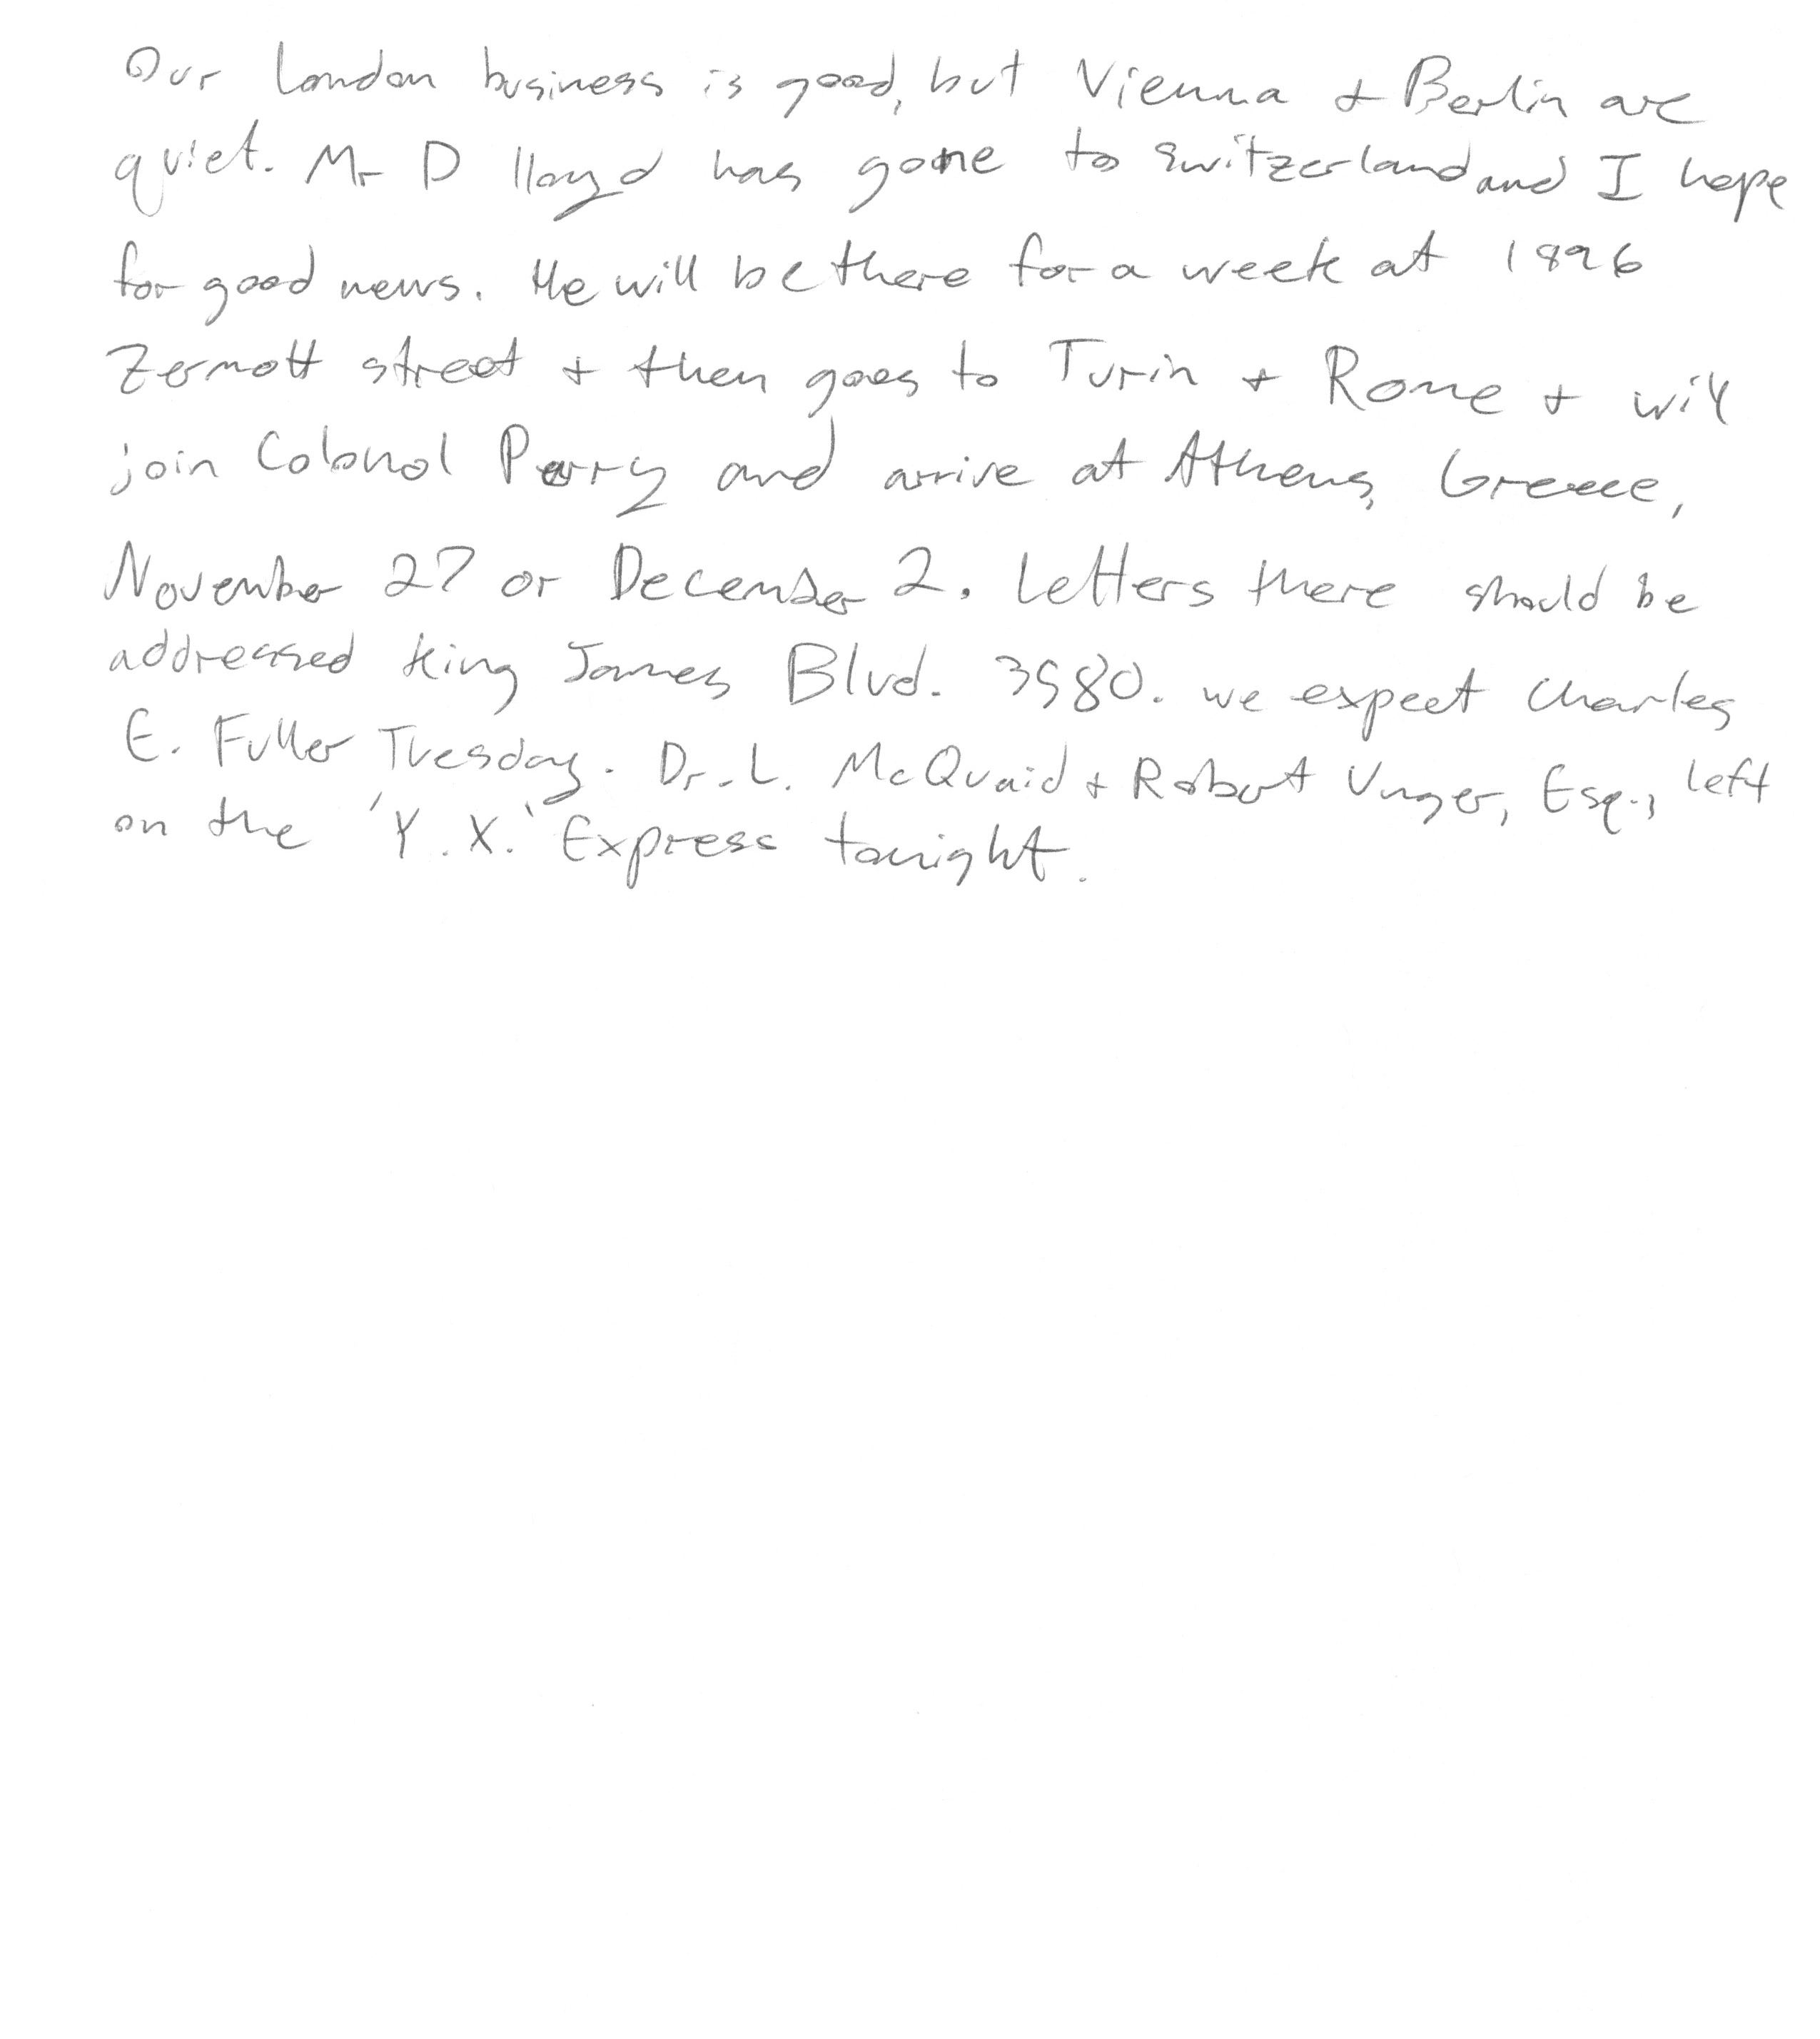 Our London business is good, but Vienna + Berlin are
quiet. Mr D lloyd has gone to Switzerland and I hope
for good news. He will be there for a week at 1896
Zermott street + then goes to Turin + Rome + will
join Colonol Parry and arrive at Athens, Greece,
November 27 or December 2. Letters there should be
addressed King James Blvd. 3580. we expect Charles
E. Fuller Tuesday. Dr. L. McQuaid + Robert Unger, Esq., left
on the 'Y.X.' Express tonight.